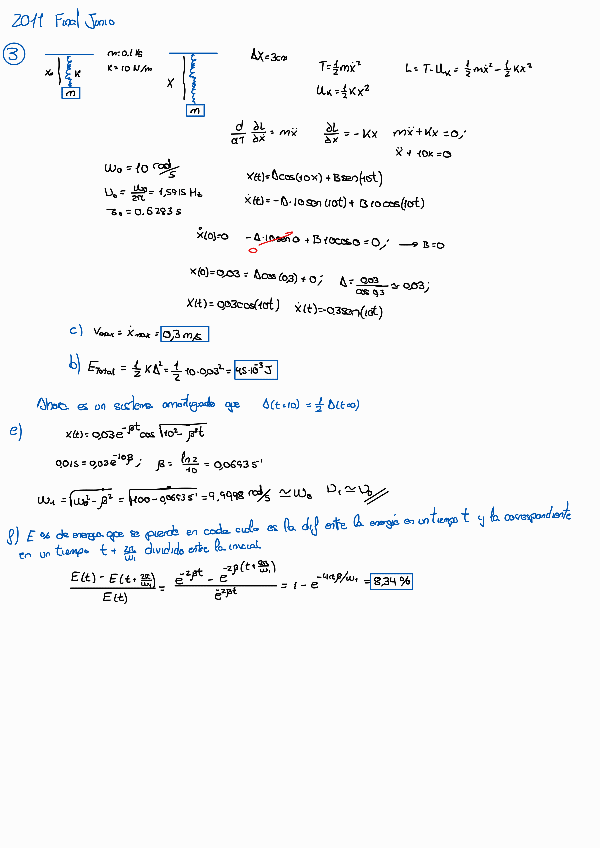 2011 Final Junio
3
m=0.1 Kg
K=10 N/m
x₀ K m
X m
ΔX=3cm
T=½mẋ²
U_K=½Kx²
L=T-U_K=½mẋ²-½Kx²
d/dT ∂L/∂ẋ = mẍ ∂L/∂x = -Kx mẍ+Kx=0;
ẍ+10K=0
ω₀=10 rad/s
υ₀=ω₀/2π=1,5915 Hz
T₀=0.6283 s
x(t)=Acos(10x)+Bsen(10t)
ẋ(t)=-A·10sen(10t)+B10cos(10t)
ẋ(0)=0 -A·10sen0+B10cos0=0; → B=0
0
x(0)=0,03=Acos(0,3)+0; A=0,03/cos 0,3≃0,03;
x(t)=0,03cos(10t) ẋ(t)=-0,3sen(10t)
c) Vmax=ẋmax=0,3 m/s
b) E_Total=½KA²=½10·0,03²=4,5·10⁻³J
Ahora es un sistema amortiguado que A(t=10)=½A(t=0)
e) x(t)=0,03e^-βt cos√10²-β² t
0,015=0,03e^-10β; β=ln2/10=0,0693 s⁻¹
ω₁=√ω₀²-β²=√100-0,0693 s¹=9,9998 rad/s≃ω₀ υ₁≃υ₀
f) E % de energia que se pierde en cada ciclo es la dif entre la energia en un tiempo t y la correspondiente
en un tiempo t+2π/ω₁ dividido entre la inicial.
E(t)-E(t+2π/ω₁)/E(t)=e^-2βt-e^-2β(t+2π/ω₁)/e^-2βt=1-e^-4πβ/ω₁=8,34%